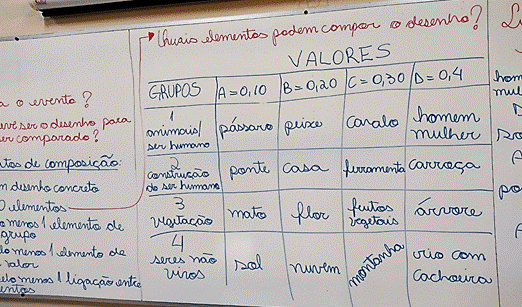 Quais elementos podem compor o desenho?
VALORES
GRUPOS A=0,10 B=0,20 C=0,30 D=0,4
1 animais/ ser humano pássaro peixe cavalo homem mulher
2 construção do ser humano ponte casa ferramenta carroça
3 vegetação mato flor frutos vegetais árvore
4 seres não vivos sol nuvem montanha rio com cachoeira
o evento?
ser o desenho para
comparado?
de composição:
desenho concreto
elementos
menos 1 elemento de
grupo
menos 1 elemento de
valor
menos 1 ligação entre